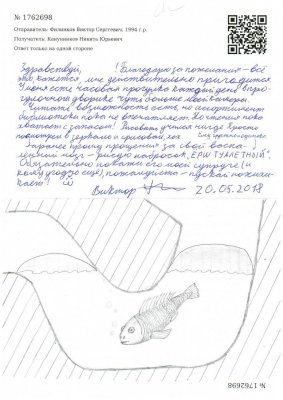 № 1762698
Отправитель: Филинков Виктор Сергеевич, 1994 г.р.
Получатель: Канунников Никита Юрьевич
Ответ только на одной стороне
Здравствуй, ! Благодарю за пожелания – всё
это, кажется, мне действительно пригодится.
У меня есть часовая прогулка каждый день в про-
гулочном дворике чуть больше моей камеры.
Читать возможность есть, но ассортимент
библиотеки пока не впечатляет. Но чтения пока
хватает с запасом! Рисовать учился нигде: просто
посмотрел в зеркало и срисовал, как
Заранее прошу прощения за свой воспа-
лённый мозг – рисую набросок „ЕРШ ТУАЛЕТНЫЙ".
Обязательно покажи его моей супруге (и
кому угодно ещё), пожалуйста – пускай похихи-
кает!
Виктор 20.05.2018
№ 1762698